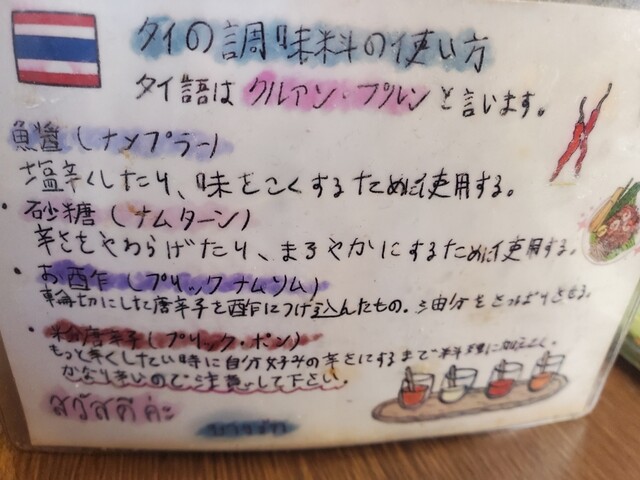 タイの調味料の使い方
タイ語は クルアン・プルン と言います。
魚醤(ナンプラー)
塩辛くしたり、味をこくするために使用する。
・砂糖(ナムターン)
辛さをやわらげたり、まろやかにするために使用する。
・お酢(プリックナムソム)
輪切にした唐辛子を酢につけ込んだもの。油分をさっぱりとさせる。
・粉唐辛子(プリック・ポン)
もっと辛くしたい時に自分好みの辛さにするまで料理に加える。
かなり辛いのでご注意して下さい。
สวัสดีค่ะ